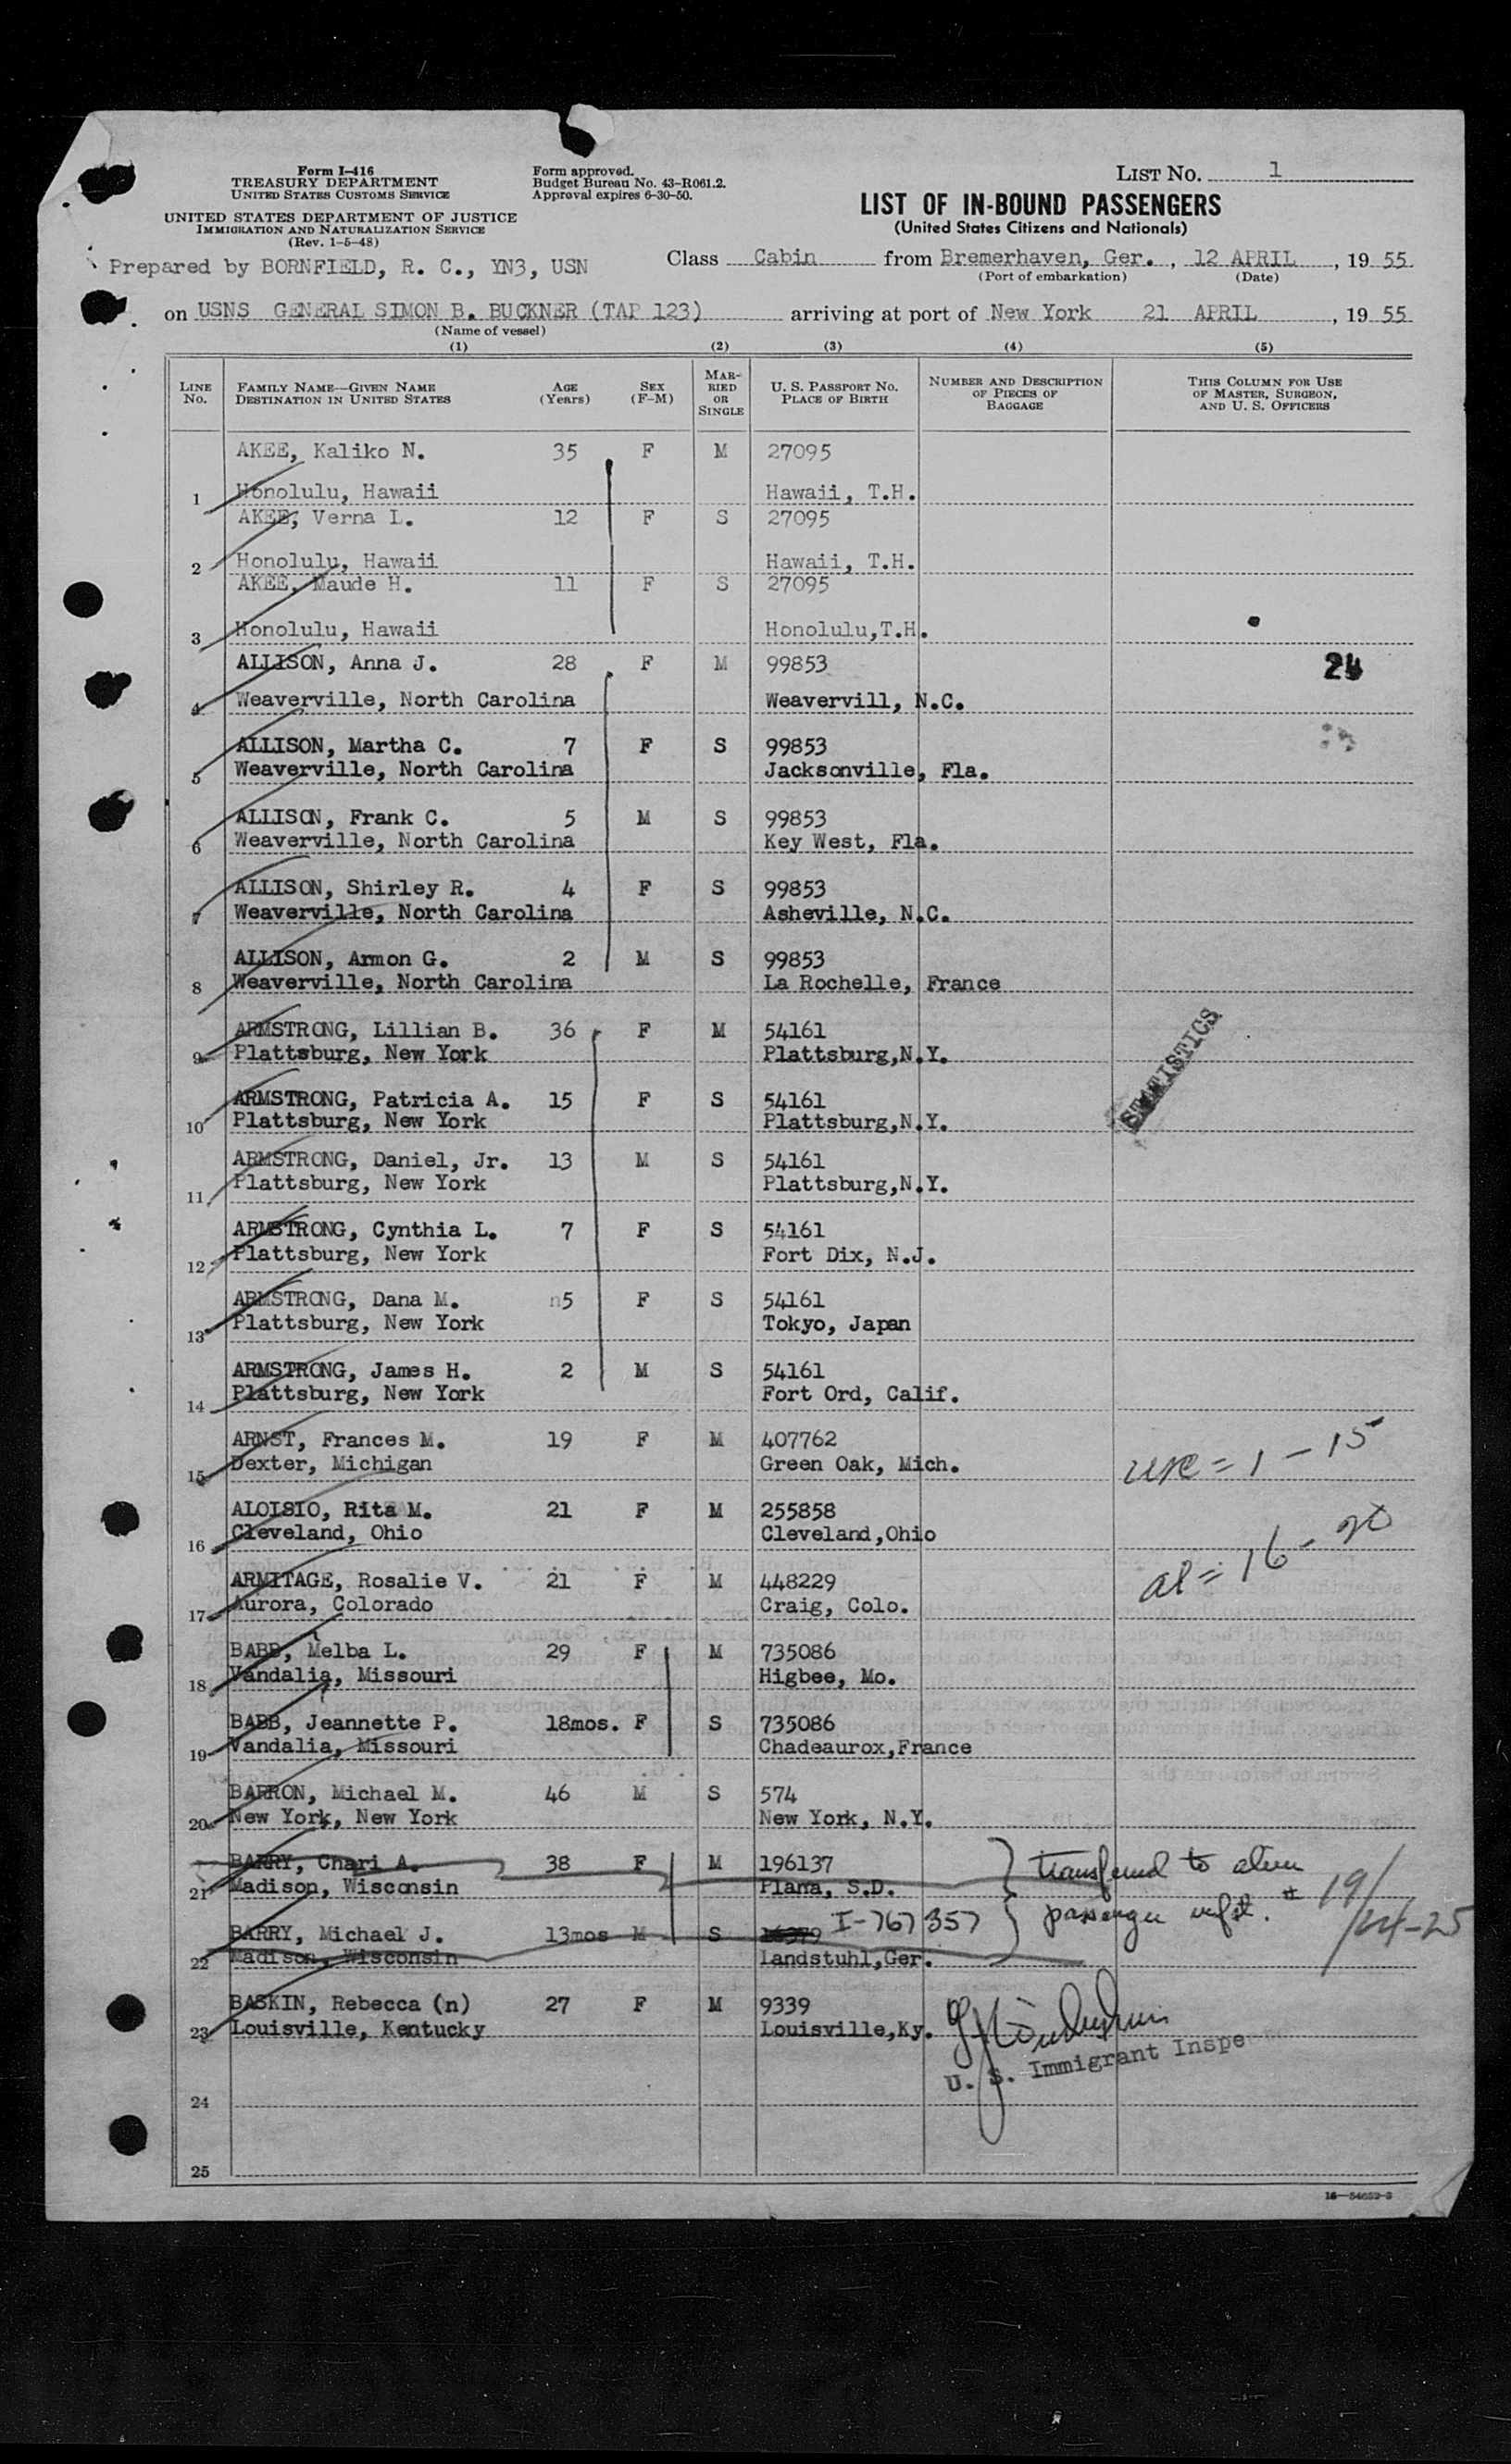 Form I-416
TREASURY DEPARTMENT
UNITED STATES CUSTOMS SERVICE
UNITED STATES DEPARTMENT OF JUSTICE
IMMIGRATION AND NATURALIZATION SERVICE
(Rev. 1-5-48)
Form approved.
Budget Bureau No. 43-R061.2.
Approval expires 6-30-50.
LIST NO. 1
LIST OF IN-BOUND PASSENGERS
(United States Citizens and Nationals)
Prepared by BORNFIELD, R. C., YN3, USN
Class Cabin from Bremerhaven, Ger., 12 APRIL, 19 55
(Port of embarkation) (Date)
on USNS GENERAL SIMON B. BUCKNER (TAP 123) arriving at port of New York 21 APRIL, 19 55
(Name of vessel)
(1) (2) (3) (4) (5)
LINE NO. FAMILY NAME—GIVEN NAME DESTINATION IN UNITED STATES AGE (Years) SEX (F-M) MARRIED OR SINGLE U. S. PASSPORT NO. PLACE OF BIRTH NUMBER AND DESCRIPTION OF PIECES OF BAGGAGE THIS COLUMN FOR USE OF MASTER, SURGEON, AND U. S. OFFICERS
AKEE, Kaliko N. 35 F M 27095
1 Honolulu, Hawaii Hawaii, T.H.
AKEE, Verna L. 12 F S 27095
2 Honolulu, Hawaii Hawaii, T.H.
AKEE, Maude H. 11 F S 27095
3 Honolulu, Hawaii Honolulu,T.H.
ALLISON, Anna J. 28 F M 99853 24
4 Weaverville, North Carolina Weavervill, N.C.
ALLISON, Martha C. 7 F S 99853
5 Weaverville, North Carolina Jacksonville, Fla.
ALLISON, Frank C. 5 M S 99853
6 Weaverville, North Carolina Key West, Fla.
ALLISON, Shirley R. 4 F S 99853
7 Weaverville, North Carolina Asheville, N.C.
ALLISON, Armon G. 2 M S 99853
8 Weaverville, North Carolina La Rochelle, France
ARMSTRONG, Lillian B. 36 F M 54161
9 Plattsburg, New York Plattsburg,N.Y.
STATISTICS
ARMSTRONG, Patricia A. 15 F S 54161
10 Plattsburg, New York Plattsburg,N.Y.
ARMSTRONG, Daniel, Jr. 13 M S 54161
11 Plattsburg, New York Plattsburg,N.Y.
ARMSTRONG, Cynthia L. 7 F S 54161
12 Plattsburg, New York Fort Dix, N.J.
ARMSTRONG, Dana M. n5 F S 54161
13 Plattsburg, New York Tokyo, Japan
ARMSTRONG, James H. 2 M S 54161
14 Plattsburg, New York Fort Ord, Calif.
ARNST, Frances M. 19 F M 407762
15 Dexter, Michigan Green Oak, Mich. = 1 - 15
ALOISIO, Rita M. 21 F M 255858
16 Cleveland, Ohio Cleveland,Ohio = 16 - 20
ARMITAGE, Rosalie V. 21 F M 448229
17 Aurora, Colorado Craig, Colo.
BABB, Melba L. 29 F M 735086
18 Vandalia, Missouri Higbee, Mo.
BABB, Jeannette P. 18mos. F S 735086
19 Vandalia, Missouri Chadeaurox,France
BARRON, Michael M. 46 M S 574
20 New York, New York New York, N.Y.
BARRY, Chari A. 38 F M 196137 transferred to alien
21 Madison, Wisconsin Plana, S.D. passenger # 19/
BARRY, Michael J. 13mos M S I-767357 /24-25
22 Madison, Wisconsin Landstuhl,Ger.
BASKIN, Rebecca (n) 27 F M 9339
23 Louisville, Kentucky Louisville,Ky.
U. S. Immigrant Inspe
24
25
16—54652-3